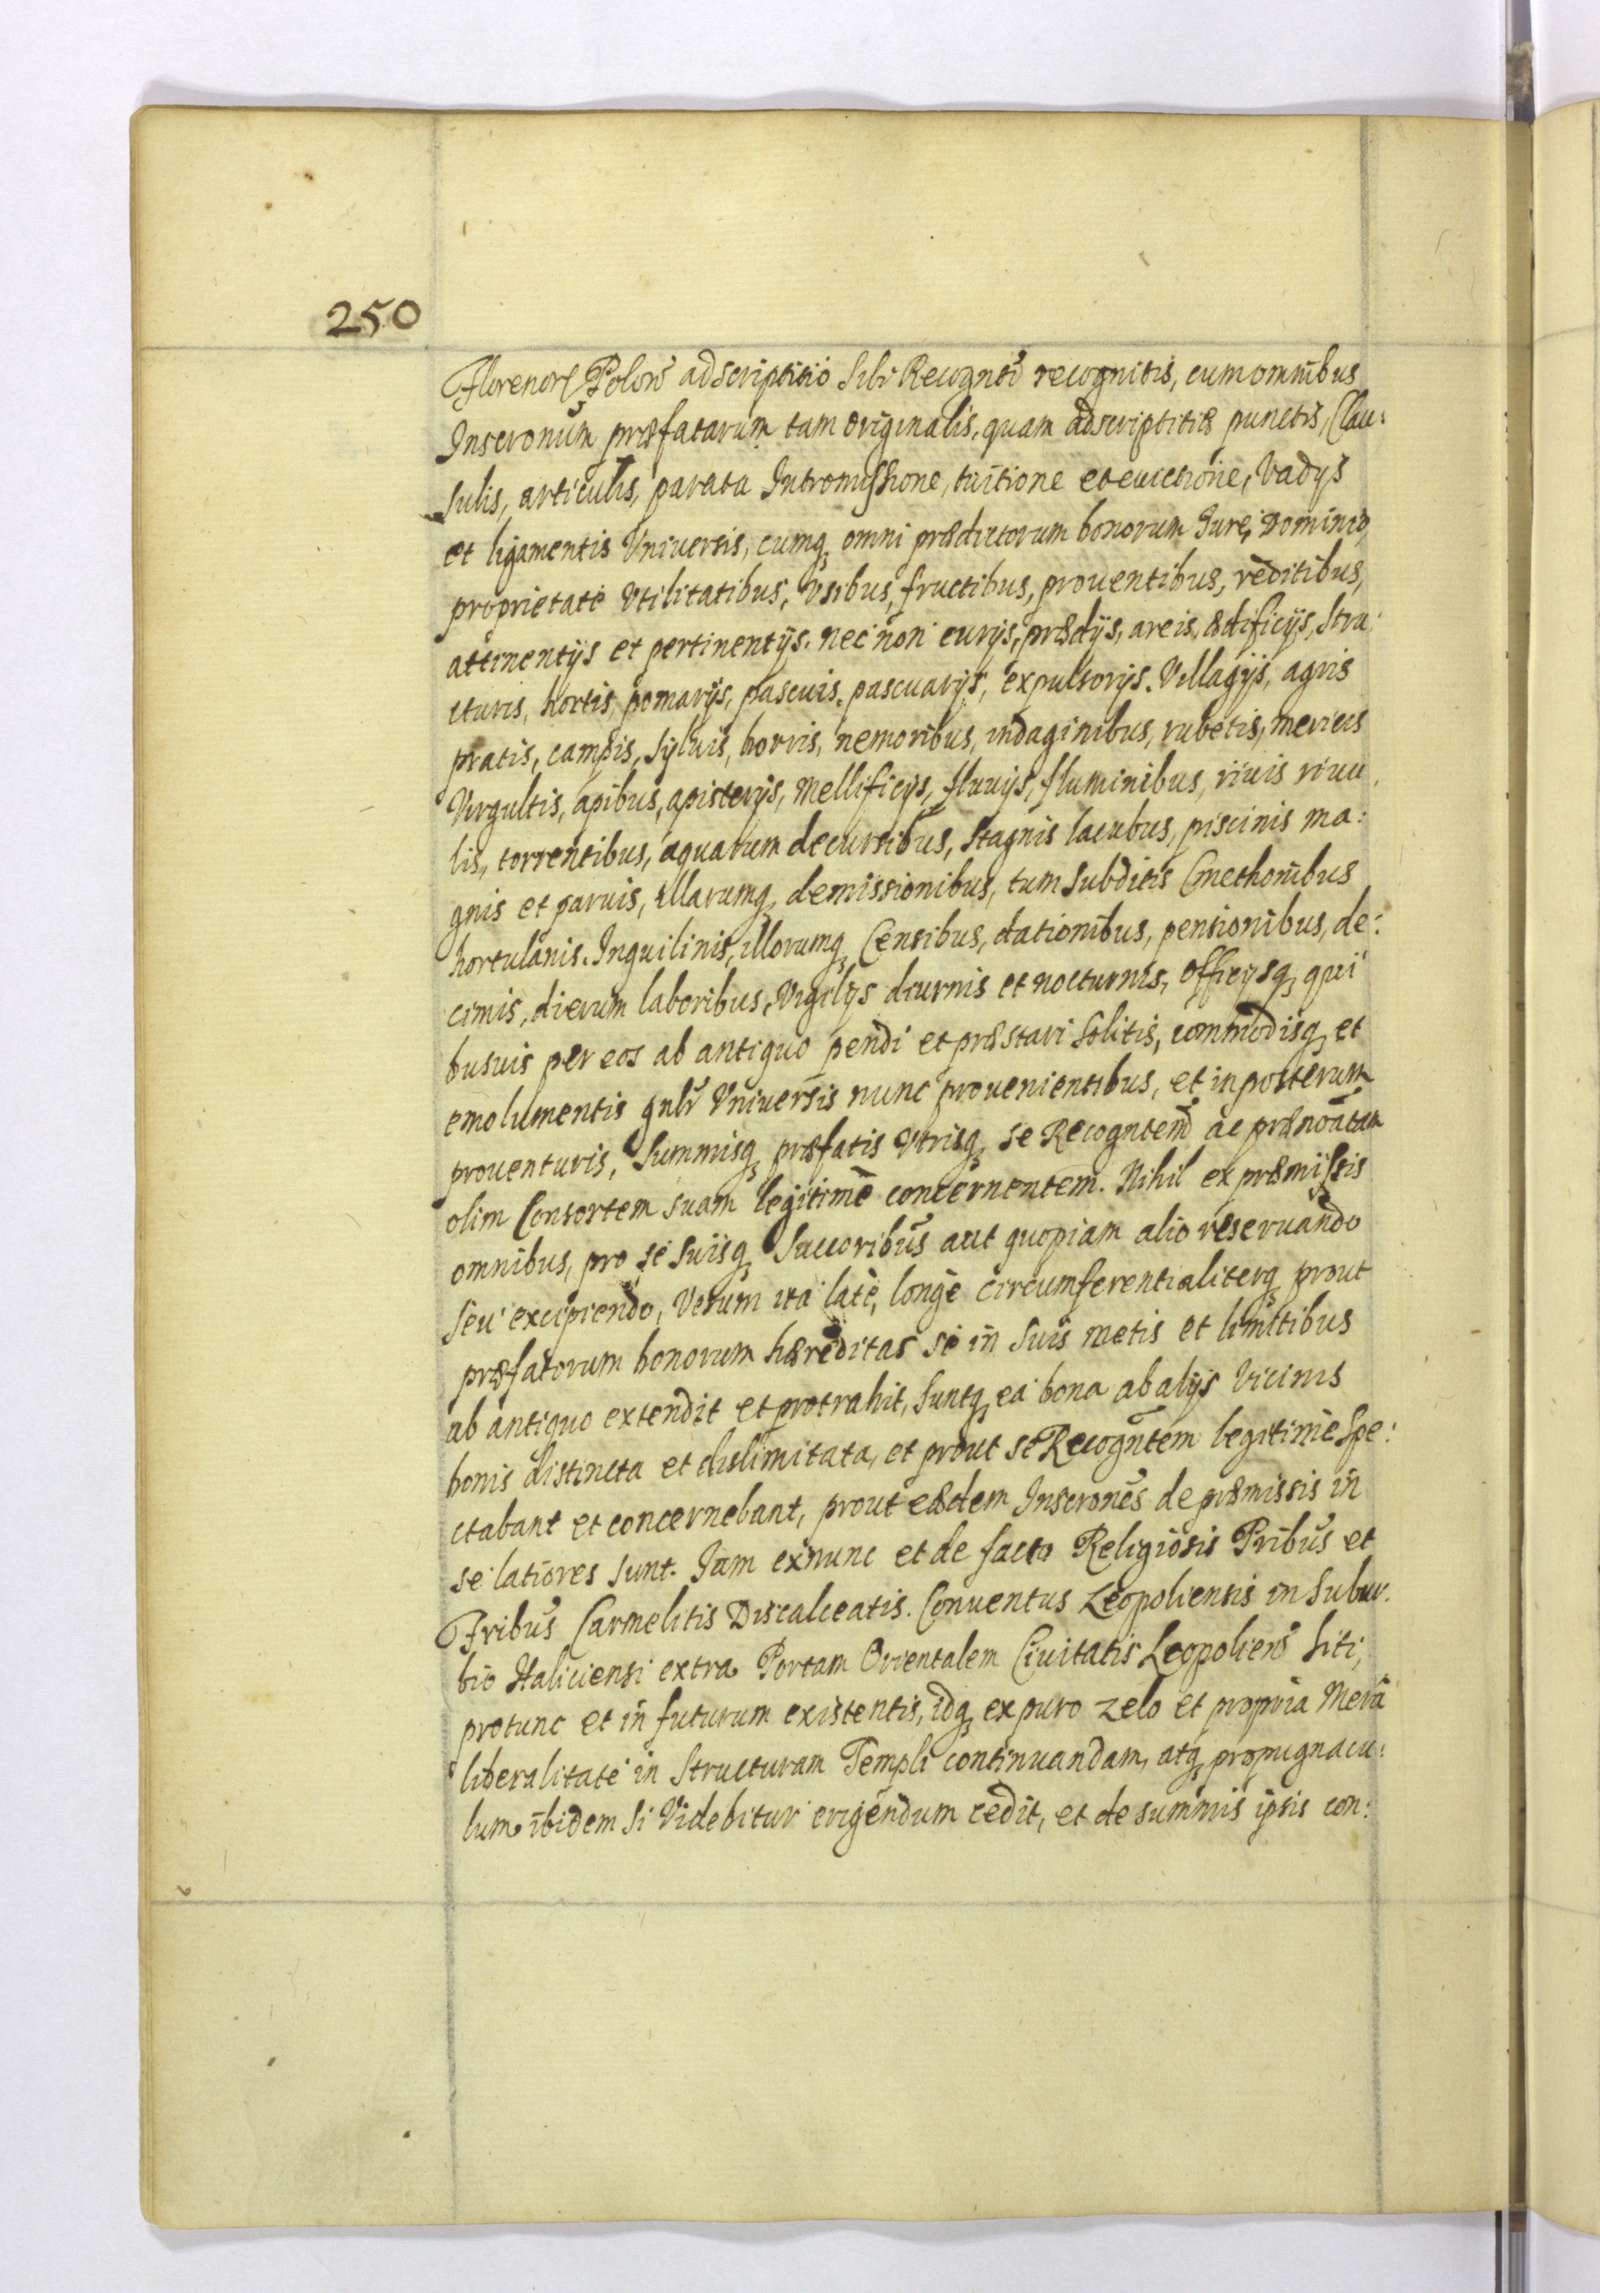 250
Florenorʃ Polon̄ adscriptitio sibi Recogntī recognitis, cum omnibus
Inscronum̄ præfatarum tam originalis, quam adscriptitiæ punctis, Clau:
sulis, articulis, parata Intromissione, tuitione et euictione, Vadys
et ligamentis Vniuersis, cumq̨ omni prædictorum bonorum Iure, Dominio,
proprietate Vtilitatibus, Vsibus, fructibus, prouentibus, reditibus,
attinentijs et pertinentijs. nec non curijs, prædijs, areis, ædificijs, Stru:
cturis, hortis, pomarijs, pascuis, pascuarijs, expulsorijs, Villagijs, agris
pratis, campis, Syluis, borris, nemoribus, indaginibus, rubetis, mericis
Virgultis, apibus, apisterijs, Mellificijs, fluuijs, fluminibus, riuis riuu:
lis, torrentibus, aquarum decursibus, Stagnis lacubus, piscinis ma:
gnis et paruis, illarumq̨ demissionibus, tum Subditis Cmethonibus
hortulanis, Inquilinis, illorumq̨ Censibus, dationibus, pensionibus, de:
cimis, dierum laboribus, Vigilijs diurnis et nocturnis, Officijsq̨ qui
busuis per eos ab antiquo pendi et præstari Solitis, commodisq̨ et
emolumentis gnl̄r Vniuersis nunc prouenientibus, et in posterum
prouenturis, Summisq̨ præfatis Vtrisq̨ se Recogntem̄ ac prænoātam
olim Consortem suam legitimè concernentem. Nihil ex præmissis
omnibus, pro se suisq̨ Succoribus̄ aut quopiam alio reseruando
seu excipiendo, Verum ita latè, longè circumferentialiterq̨ prout
præfatorum bonorum hæreditas se in suis metis et limitibus
ab antiquo extendit et protrahit, suntq̨ ea bona ab alijs Vicinis
bonis distincta et dislimitata, et prout se Recogn̄tem legitime Spe:
ctabant et concernebant, prout eædem Inscrones̄ de præmissis in
se latiores sunt. Iam exnunc et de facto Religiosis Pribus̄ et
Fribus̄ Carmelitis Discalceatis. Conuentus Leopoliensis in Subur:
bio Haliciensi extra Portam Orientalem Ciuitatis Leopolien̄ siti,
protunc et in futurum existentis, idq̨ ex puro zelo et propria Mera
liberalitate in Structuram Templi continuandam, atq̨ propugnacu:
lum ibidem si Videbitur erigendum cedit, et de summis ipsis con: